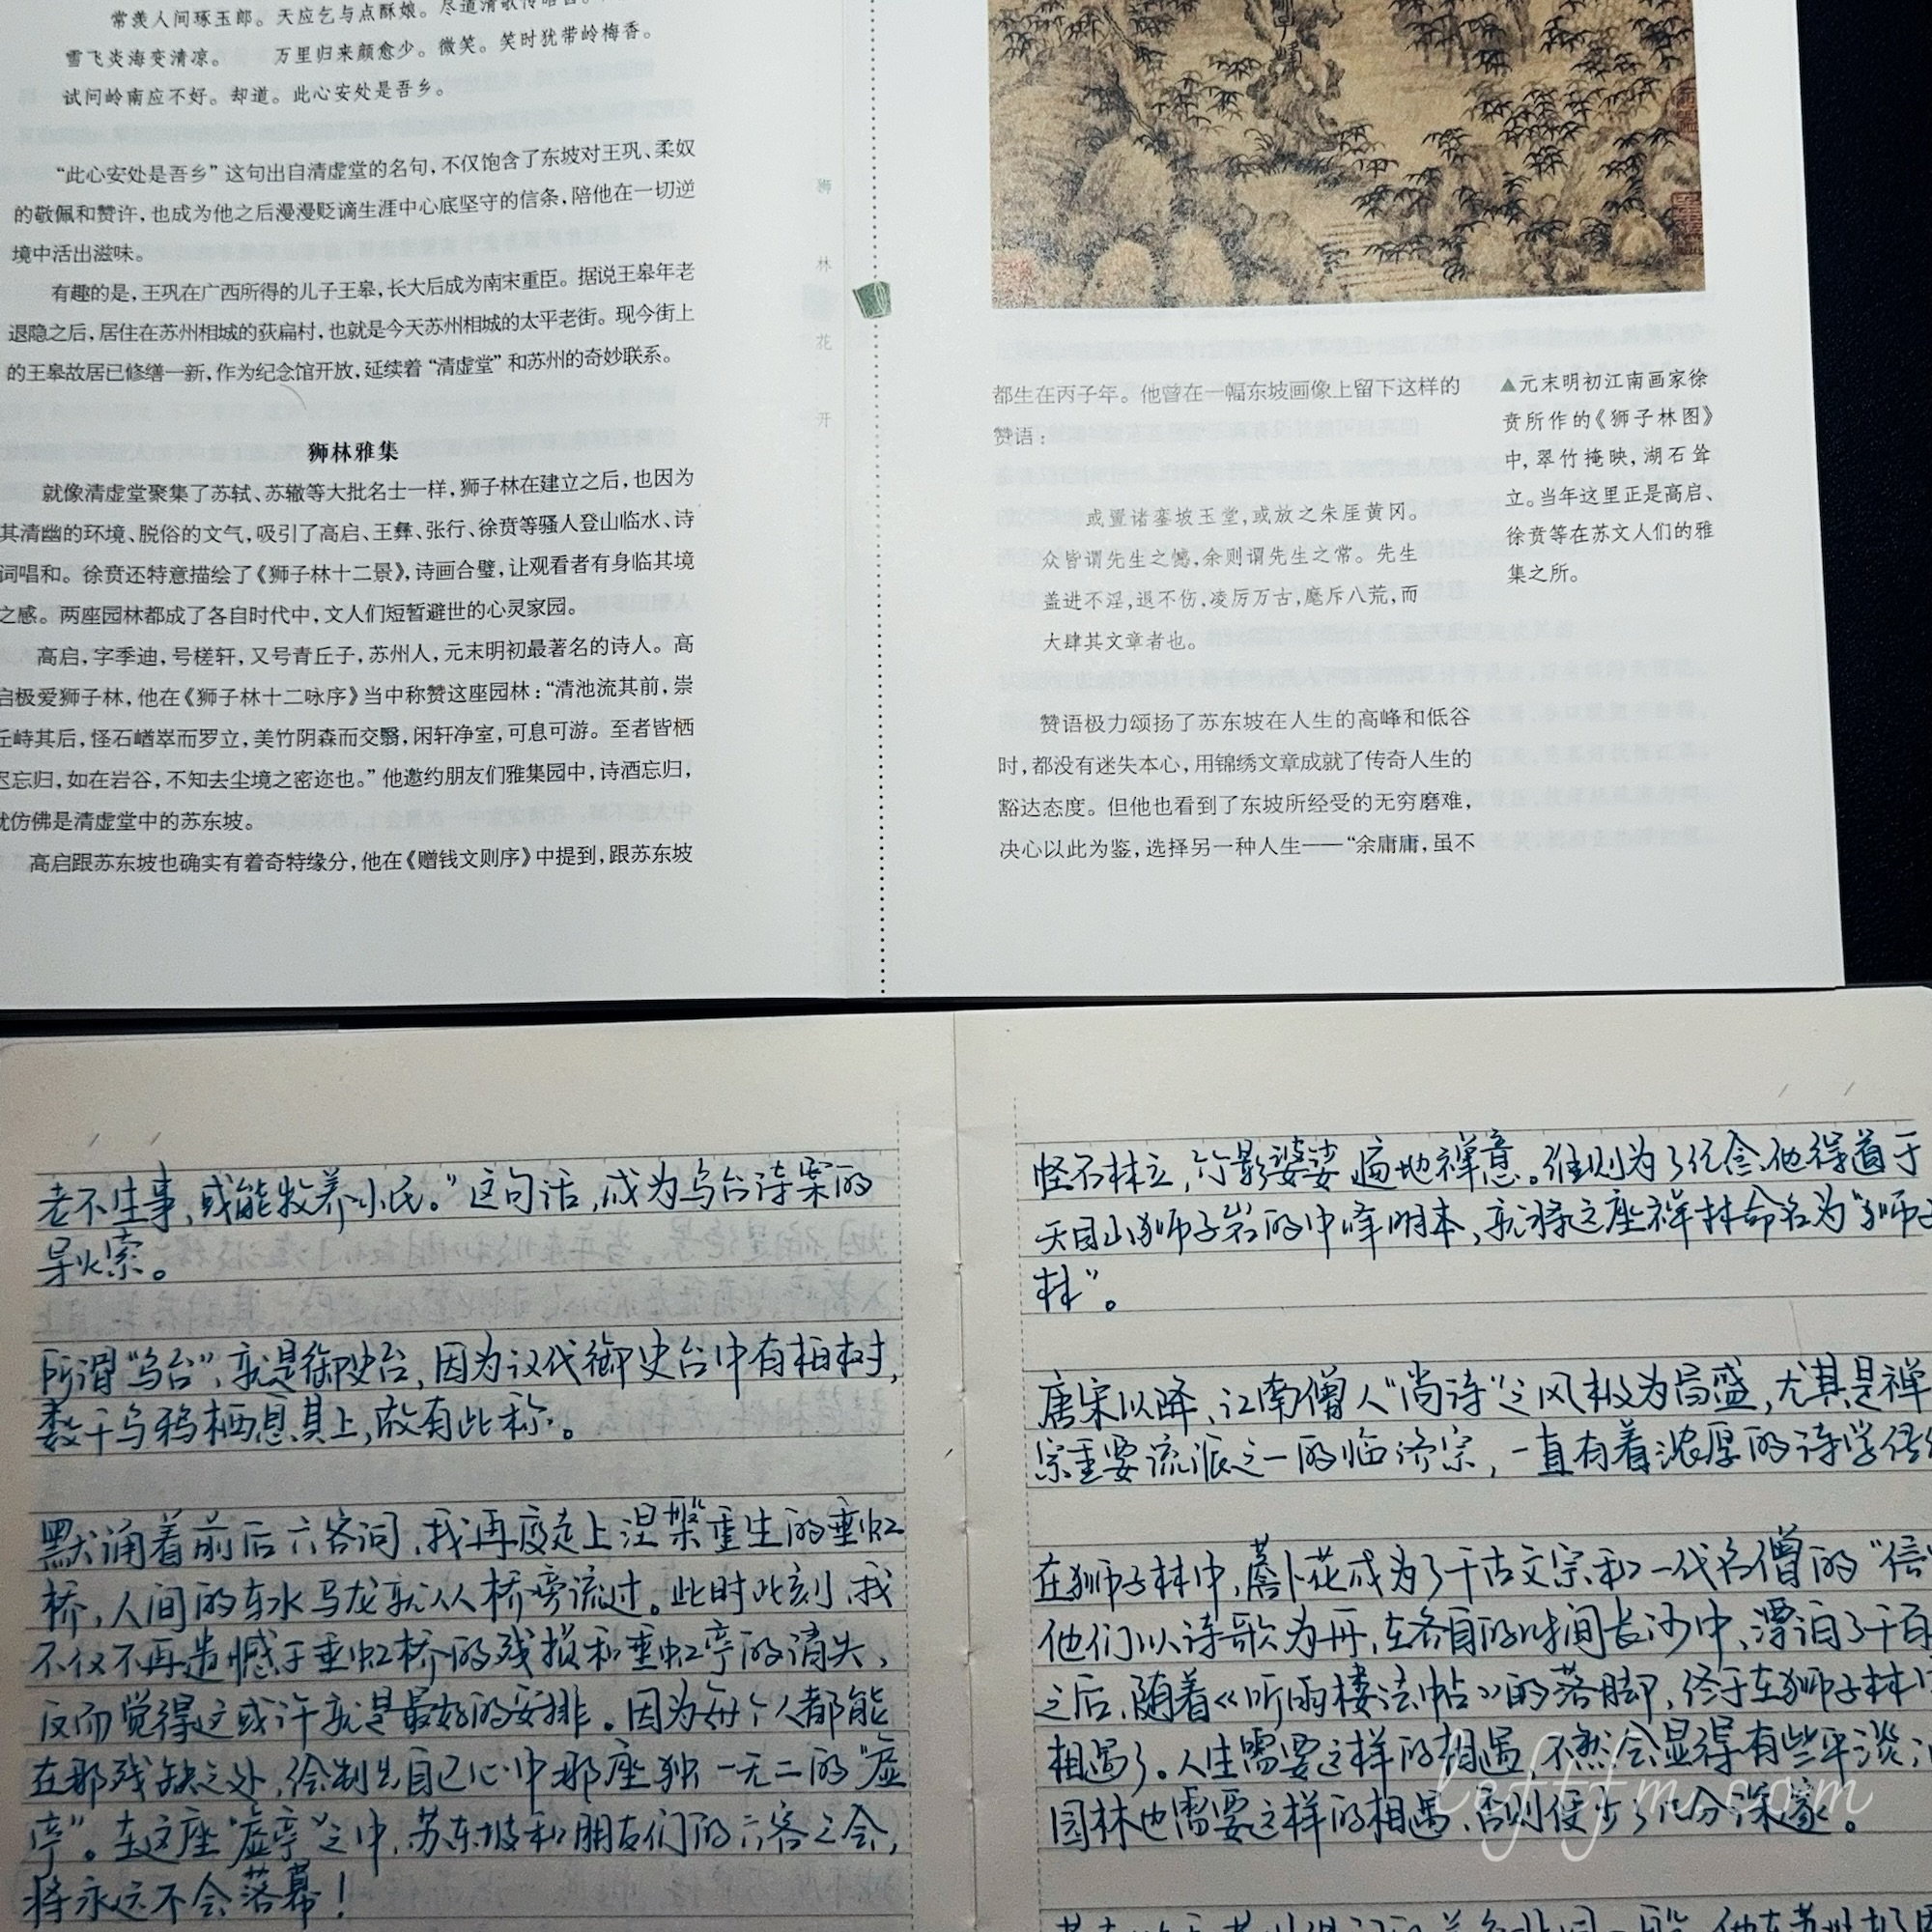 常羡人间琢玉郎。天应乞与点酥娘。尽道清歌传皓齿。
雪飞炎海变清凉。 万里归来颜愈少。微笑。笑时犹带岭梅香。
试问岭南应不好。却道。此心安处是吾乡。
“此心安处是吾乡”这句出自清虚堂的名句，不仅饱含了东坡对王巩、柔奴
的敬佩和赞许，也成为他之后漫漫贬谪生涯中心底坚守的信条，陪他在一切逆
境中活出滋味。
有趣的是，王巩在广西所得的儿子王皋，长大后成为南宋重臣。据说王皋年老
退隐之后，居住在苏州相城的荻扁村，也就是今天苏州相城的太平老街。现今街上
的王皋故居已修缮一新，作为纪念馆开放，延续着“清虚堂”和苏州的奇妙联系。
狮林雅集
就像清虚堂聚集了苏轼、苏辙等大批名士一样，狮子林在建立之后，也因为
其清幽的环境、脱俗的文气，吸引了高启、王彝、张行、徐贲等骚人登山临水、诗
词唱和。徐贲还特意描绘了《狮子林十二景》，诗画合璧，让观看者有身临其境
之感。两座园林都成了各自时代中，文人们短暂避世的心灵家园。
高启，字季迪，号槎轩，又号青丘子，苏州人，元末明初最著名的诗人。高
启极爱狮子林，他在《狮子林十二咏序》当中称赞这座园林：“清池流其前，崇
丘峙其后，怪石崷崒而罗立，美竹阴森而交翳，闲轩净室，可息可游。至者皆栖
迟忘归，如在岩谷，不知去尘境之密迩也。”他邀约朋友们雅集园中，诗酒忘归，
就仿佛是清虚堂中的苏东坡。
高启跟苏东坡也确实有着奇特缘分，他在《赠钱文则序》中提到，跟苏东坡
狮
林
花
开
都生在丙子年。他曾在一幅东坡画像上留下这样的
赞语：
或置诸銮坡玉堂，或放之朱厓黄冈。
众皆谓先生之憾，余则谓先生之常。先生
盖进不淫，退不伤，凌厉万古，麾斥八荒，而
大肆其文章者也。
赞语极力颂扬了苏东坡在人生的高峰和低谷
时，都没有迷失本心，用锦绣文章成就了传奇人生的
豁达态度。但他也看到了东坡所经受的无穷磨难，
决心以此为鉴，选择另一种人生——“余庸庸，虽不
▲元末明初江南画家徐
贲所作的《狮子林图》
中，翠竹掩映，湖石耸
立。当年这里正是高启、
徐贲等在苏文人们的雅
集之所。
老不生事，或能牧养小民。”这句话，成为乌台诗案的
导火索。
所谓“乌台”，就是御史台，因为汉代御史台中有柏树，
数千乌鸦栖息其上，故有此称。
默诵着前后六客词，我再度走上涅槃重生的垂虹
桥，人间的车水马龙就从桥旁流过。此时此刻，我
不仅不再遗憾于垂虹桥的残损和垂虹亭的消失，
反而觉得这或许就是最好的安排。因为每个人都能
在那残缺之处，绘制出自己心中那座独一无二的“虚
亭”。在这座“虚亭”之中，苏东坡和朋友们的六客之会，
将永远不会落幕！
怪石林立，竹影婆娑，遍地禅意。惟则为了纪念他得道于
天目山狮子岩的中峰明本，就将这座禅林命名为“狮子
林”。
唐宋以降，江南僧人“尚诗”之风极为昌盛，尤其是禅
宗重要流派之一的临济宗，一直有着浓厚的诗学
在狮子林中，薝卜花成为了千古文宗和一代名僧的“信
他们以诗歌为舟，在各自的时间长沙中，漂泊了千百
之后，随着《听雨楼法帖》的落脚，终于在狮子林
相遇了。人生需要这样的相遇，不然会显得有些平淡；
园林也需要这样的相遇，否则便少了几分深邃。
leftfm.com